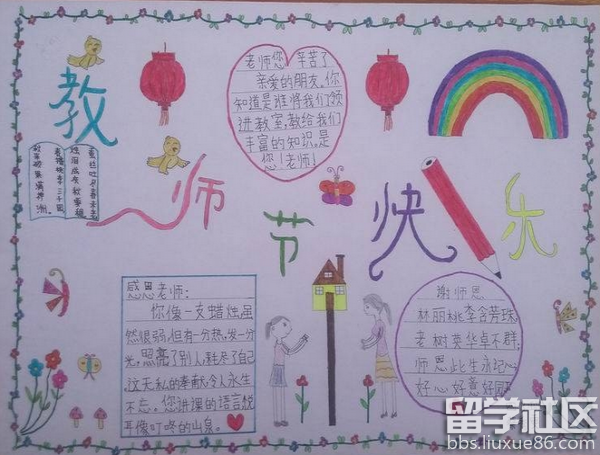 教师节快乐
老师您辛苦了
亲爱的朋友,你
知道是谁将我们领
进教室,教给我们
丰富的知识,是
您!老师!
春蚕吐丝
感恩老师:
你像一支蜡烛虽
然很弱,但有一分热,发一分
光,照亮了别人,耗尽了自己
,这无私的奉献,令人永生
不忘。您讲课的语言悦
耳像叮咚的山泉。
谢师恩
林丽桃李含芳珠,
老树英华卓不群;
师恩此生永记心
好心好意好
留学社区
bbs.liuxue86.com